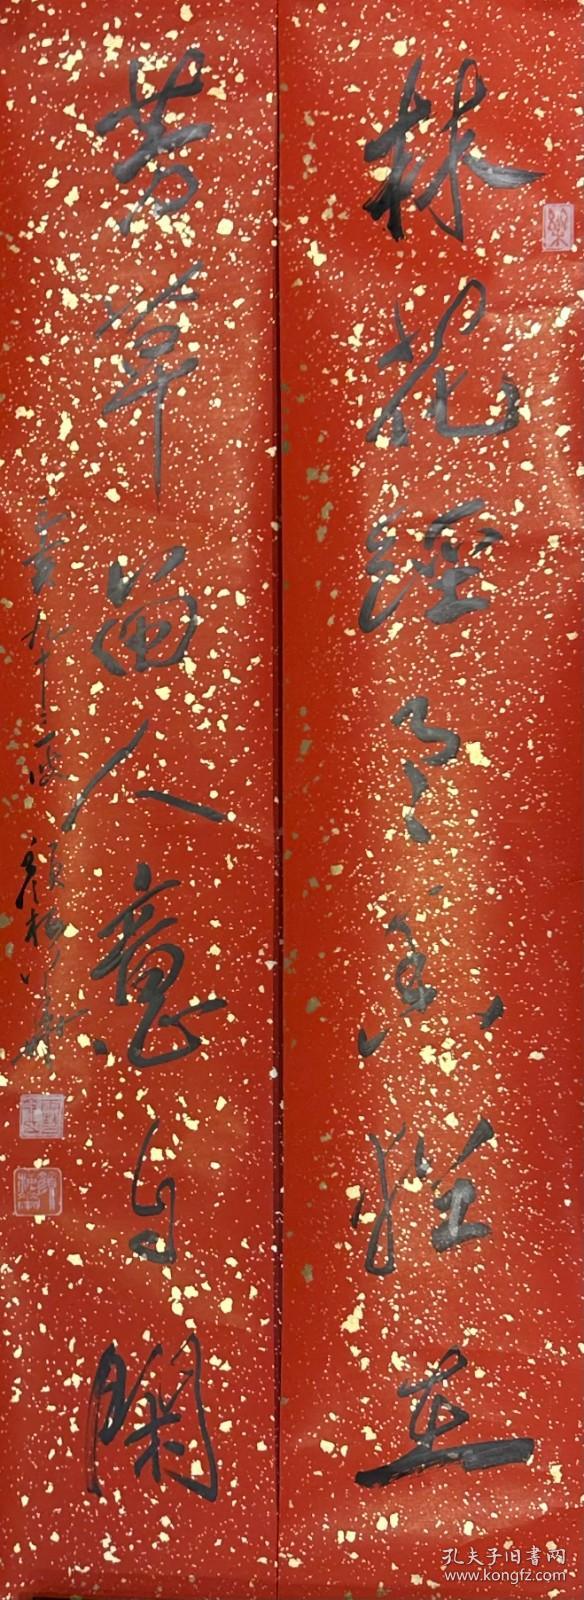 林花經雨香猶在
芳草留人意自閒
九十三歲
孔夫子旧书网
www.kongfz.com